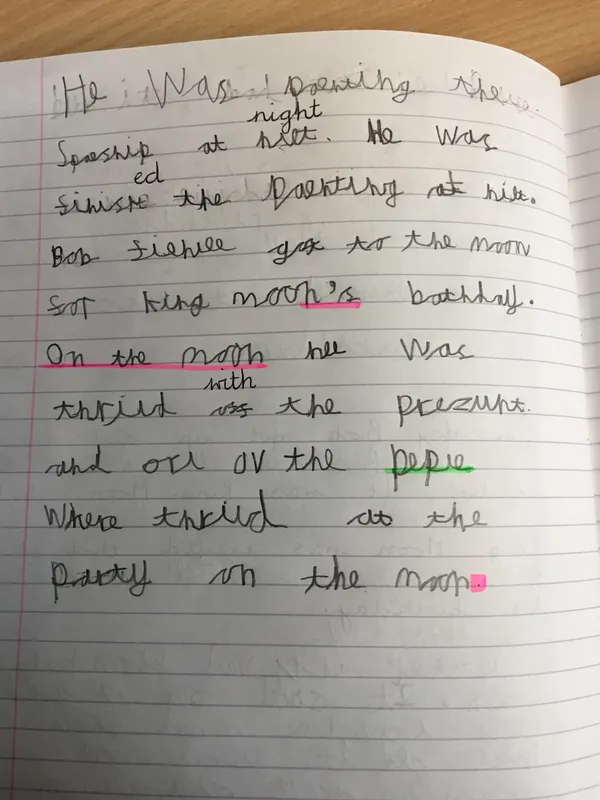 He Was paenting the
night
Spaeship at hiet. He was
ed
finisht the paenting at hit.
Bob fienlee gox to the moon
for king moon's bathhay.
On the moon hee was
with
thrild the prezunt.
and orl ov the pepie
Where thrild at the
party on the moon.